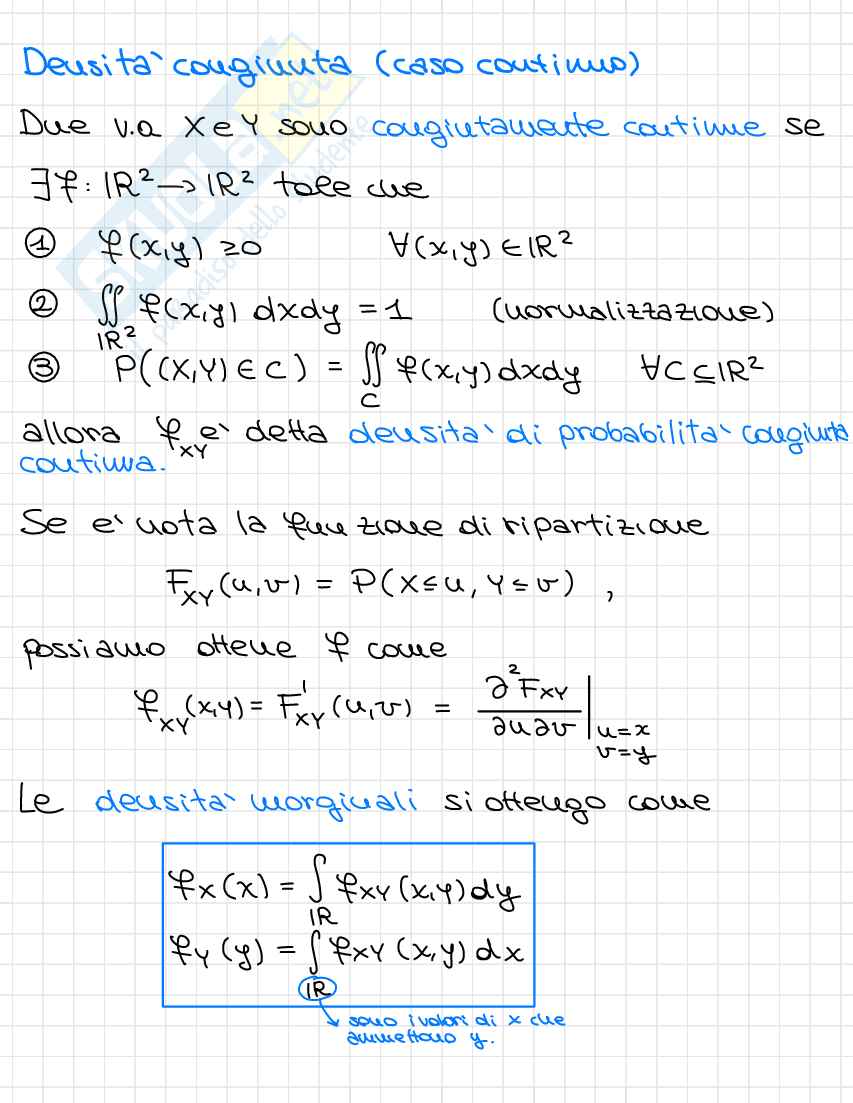 Densità congiunta (caso continuo)
Due v.a X e Y sono congiutamente continue se
∃f: ℝ² → ℝ² tale che
① f(x,y) ≥0 ∀(x,y) ∈ ℝ²
② ∬_ℝ² f(x,y) dxdy = 1 (normalizzazione)
③ P((X,Y) ∈ C) = ∬_C f(x,y) dxdy ∀C ⊆ ℝ²
allora f_XY è detta densità di probabilità congiunta
continua.
Se è nota la funzione di ripartizione
F_XY (u,v) = P(X≤u, Y≤v) ,
possiamo ottene f come
f_XY (x,y) = F'_XY (u,v) = ∂²F_XY / ∂u∂v |u=x v=y
Le densità marginali si ottengo come
f_X (x) = ∫_ℝ f_XY (x,y) dy
f_Y (y) = ∫_ℝ f_XY (x,y) dx
sono i valori di x che
ammettono y.